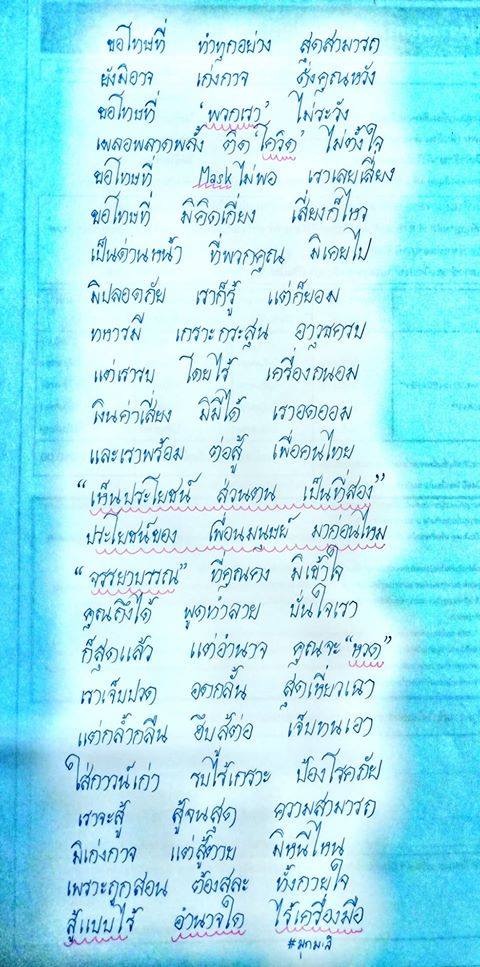 ขอโทษที่ ทำทุกอย่าง สุดสามารถ
ยังมิอาจ เก่งกาจ ดั่งคุณหวัง
ขอโทษที่ 'พวกเรา' ไม่ระวัง
เผลอพลาดพลั้ง ติด'โควิด' ไม่ตั้งใจ
ขอโทษที่ Mask ไม่พอ เราเลยเสี่ยง
ขอโทษที่ มิคิดเกี่ยง เสี่ยงก็ไหว
เป็นด่านหน้า ที่พวกคุณ มิเคยไป
มิปลอดภัย เราก็รู้ แต่ก็ยอม
ทหารมี เกราะกระสุน อาวุธครบ
แต่เรารบ โดยไร้ เครื่องถนอม
เงินค่าเสี่ยง มิมีได้ เราอดออม
และเราพร้อม ต่อสู้ เพื่อคนไทย
"เห็นประโยชน์ ส่วนตน เป็นที่สอง"
ประโยชน์ของ เพื่อนมนุษย์ มาก่อนไหม
"จรรยาบรรณ" ที่คุณคง มิเข้าใจ
คุณถึงได้ พูดทำลาย บั่นใจเรา
ก็สุดแล้ว แต่อำนาจ คุณจะ"หวด"
เราเจ็บปวด อดกลั้น สุดเหี่ยวเฉา
แต่กล้ำกลืน ฮึบสู้ต่อ เจ็บทนเอา
ใส่กาวน์เก่า รบไร้เกราะ ป้องโรคภัย
เราจะสู้ สู้จนสุด ความสามารถ
มิเก่งกาจ แต่สู้ตาย มิหนีไหน
เพราะถูกสอน ต้องสละ ทั้งกายใจ
สู้แบบไร้ อำนาจใด ไร้เครื่องมือ
#มุกมะลิ